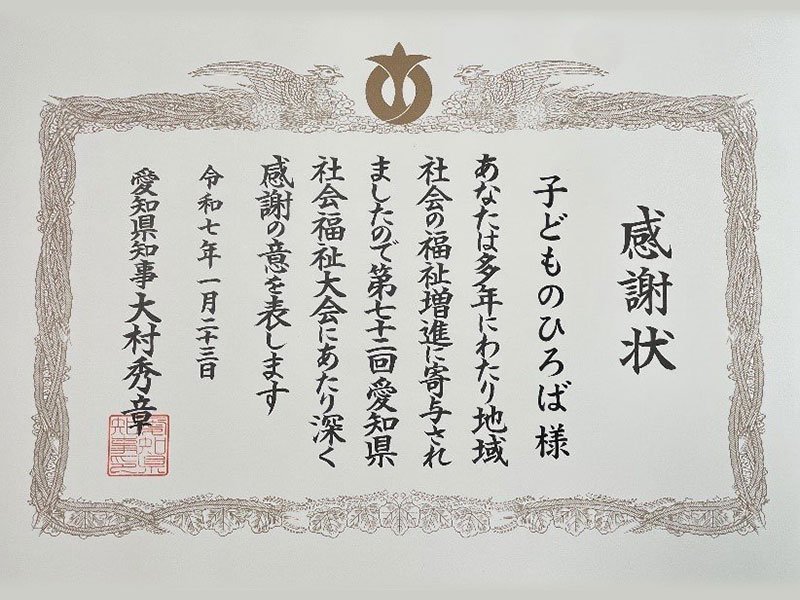 感謝状
子どものひろば様
あなたは多年にわたり地域
社会の福祉増進に寄与され
ましたので第七十二回愛知県
社会福祉大会にあたり深く
感謝の意を表します
令和七年一月二十三日
愛知県知事大村秀章
愛知県知事之印